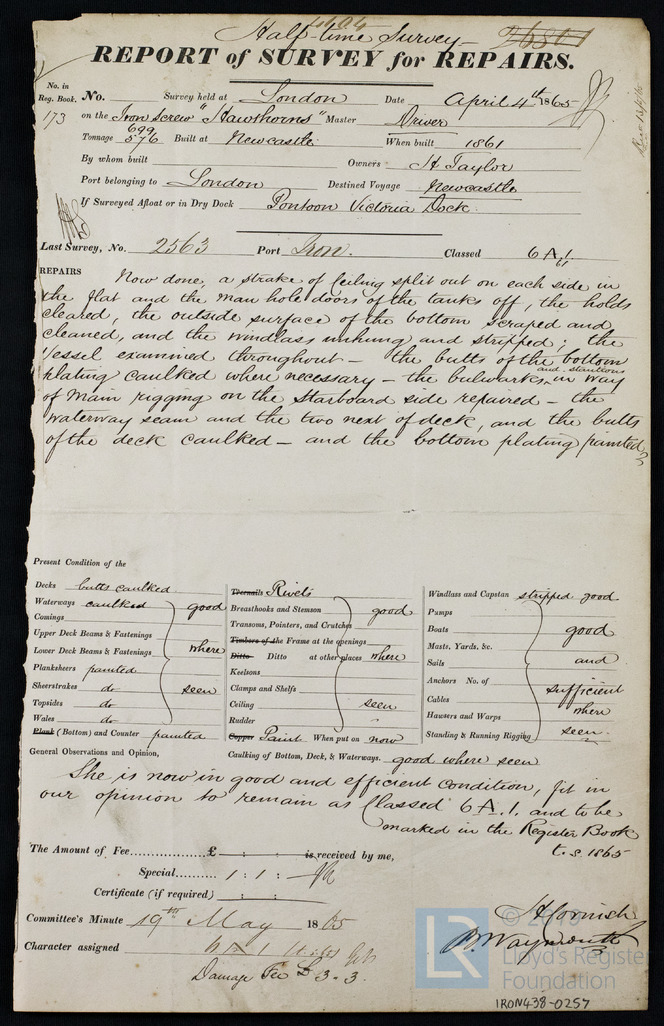 Half-time Survey
26801
REPORT of SURVEY for REPAIRS.
No. in Reg. Book.
173
No. Survey held at London Date April 4th 1865
on the Iron Screw "Hawthorns" Master Driver
Tonnage 699 576 Built at Newcastle When built 1861
By whom built Owners H Taylor
Port belonging to London Destined Voyage Newcastle
If Surveyed Afloat or in Dry Dock Pontoon Victoria Dock.
Last Survey, No. 2563 Port Iron. Classed 6 A.1.
REPAIRS Now done, a strake of Ceiling split out on each side in
the flat and the man hole doors of the tanks off, the holds
cleared, the outside surface of the bottom scraped and
cleaned, and the windlass unhung and stripped; the
Vessel examined throughout – the butts of the bottom
plating caulked where necessary – the bulwarks and stantions in way
of Main rigging on the Starboard side repaired – the
waterway seam and the two next of deck, and the butts
of the deck caulked – and the bottom plating painted
Present Condition of the
Decks butts caulked
Waterways caulked good
Comings
Upper Deck Beams & Fastenings
Lower Deck Beams & Fastenings where
Planksheers painted
Sheerstrakes do seen
Topsides do
Wales do
Plank (Bottom) and Counter painted
Treenails Rivets
Breasthooks and Stemson good
Transoms, Pointers, and Crutches
Timbers of the Frame at the openings
Ditto Ditto at other places where
Keelsons
Clamps and Shelfs
Ceiling seen
Rudder "
Copper Paint When put on now
Windlass and Capstan stripped good
Pumps
Boats good
Masts, Yards, &c.
Sails and
Anchors No. of sufficient
Cables where
Hawsers and Warps
Standing & Running Rigging seen.
General Observations and Opinion, Caulking of Bottom, Deck, & Waterways. good where seen
She is now in good and efficient condition, fit in
our opinion to remain as Classed 6 A.1. and to be
marked in the Register Book
t.s. 1865
The Amount of Fee............... £ : : is received by me,
Special.......... 1 : 1 :
Certificate (if required) : :
Committee's Minute 19th May 1865
Character assigned 6 A 1
Damage Fee £3.3.
H Cornish
B. Waymouth
LR
© 2019
Lloyd's Register
Foundation
IRON438-0257